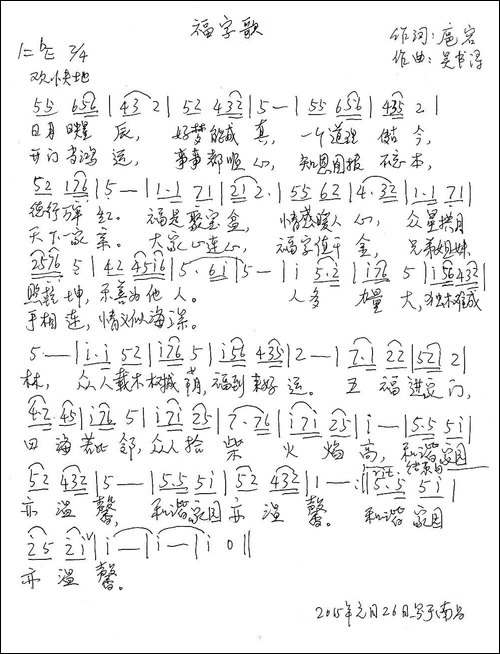 福字歌
作词:扈容
1=♭E 2/4 作曲:吴书淳
欢快地
55 656 | 43 2 | 52 432 | 5 — | 55 656 | 435 2 |
日月 星 辰, 好梦能成 真, 一个道理 传古 今,
开门 鸿 运, 事事都顺 心, 知恩图报 不忘 本,
52 176 | 5 — | 1·1 71 | 21 2· | 55 62 | 4·32 | 1·1 71 |
德行万年 红。 福是聚宝 盆, 情感暖人 心, 众星拱月
天下一家 亲。 大家心连 心, 福字值千 金, 兄弟姐妹
2576 5 | 42 4516 | 5· 61 | 5 — | 1 5·2 | 176 5 | 156 432 |
照乾 坤, 乐善为他 人。 人多 力量 大, 独木难成
手相 连, 情义似海 深。
5 — | 1·1 52 | 176 5 | 156 435 | 2 — | 7·1 22 | 521 2 |
林, 众人载木树成 荫, 福到来好 运。 五福 进家 门,
42 45 | 176 5 | 171 25 | 7·76 | 171 25 | 1 — | 5·5 51 |
四海 若比 邻, 众人 拾 柴 火 焰 高, 和谐家园
rit. 结束句
52 432 | 5 — | 5·5 51 | 52 432 | 1 — :|| 5·5 51 |
亦 温 馨, 和谐家园 亦 温 馨。 和谐 家园
25 21 | 1 — | 1 — | 1 0 ||
亦 温 馨。
2015年元月26日写于南昌